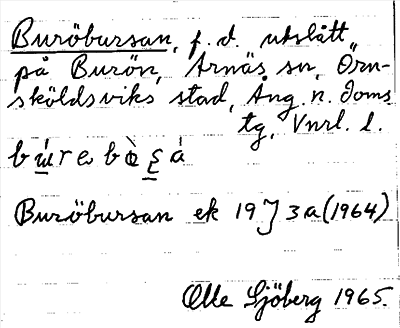 Buröbursan, f.d. utslått
på Burön, Arnäs sn, Örn-
sköldsviks stad, Ång. n. doms
tg, Vnrl. l.
Buröbursan ek 19J 3a (1964)
Olle Sjöberg 1965.